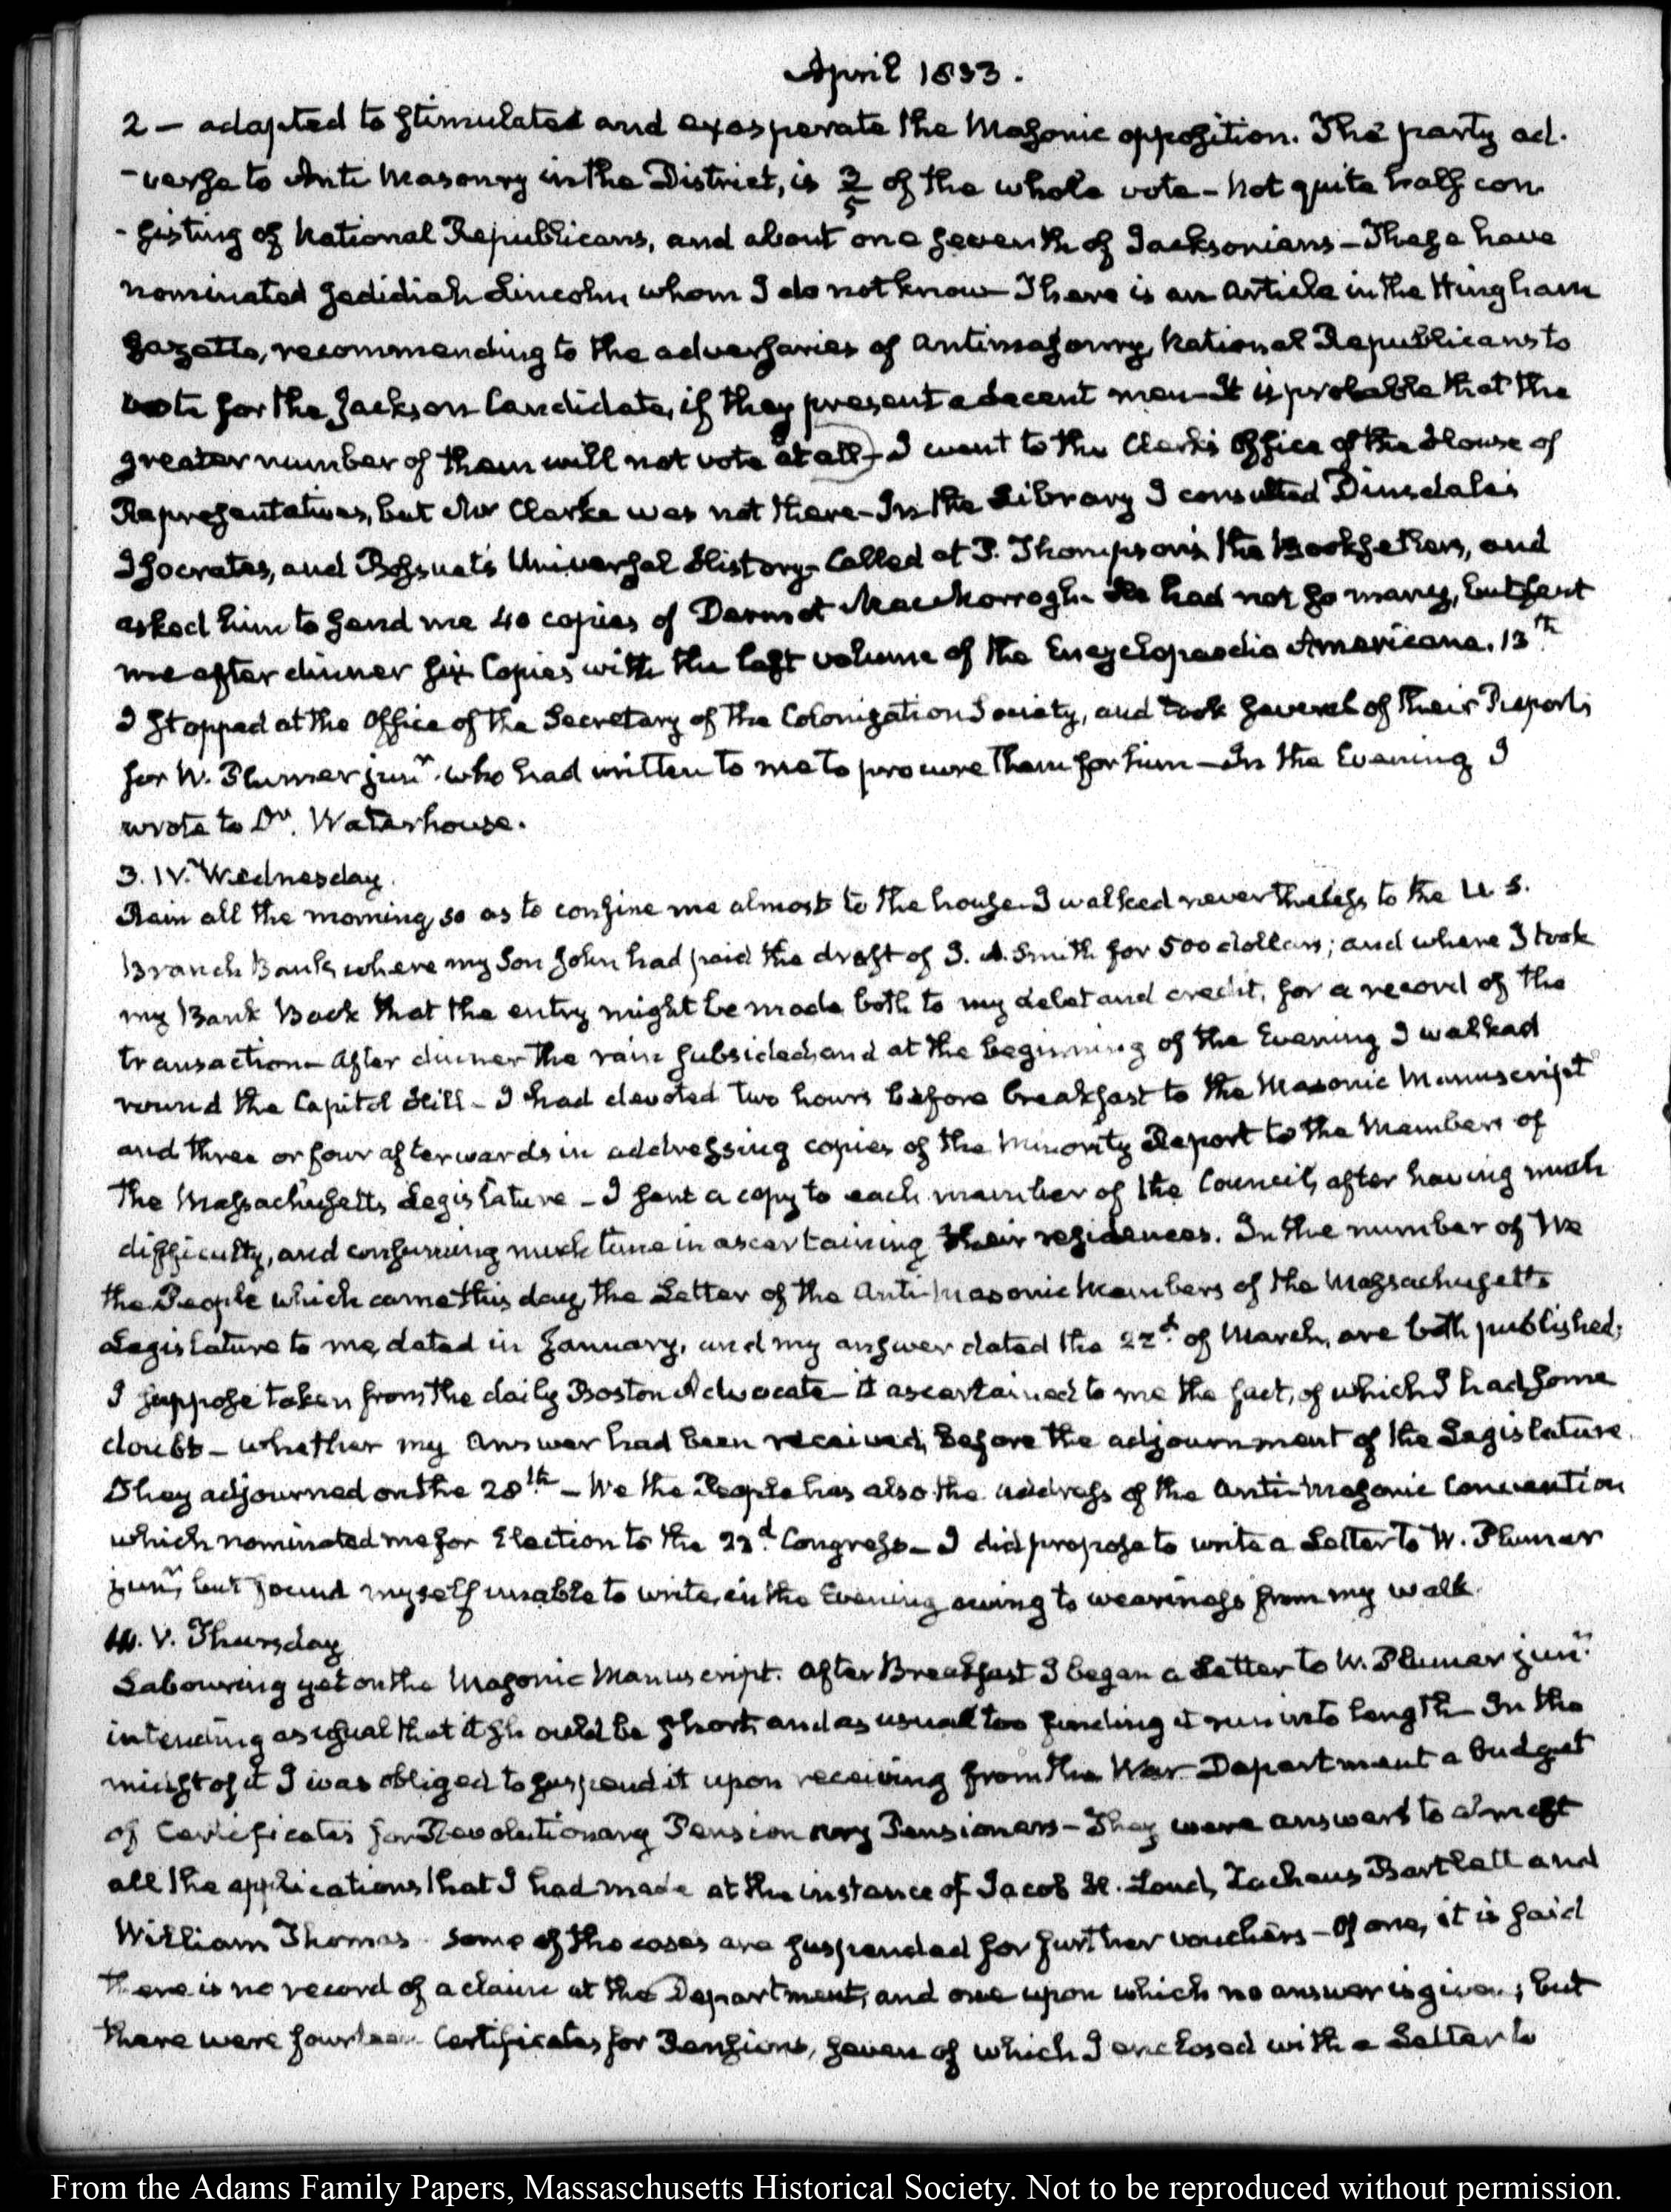 April 1833.
2 — adapted to stimulated and exasperate the Masonic opposition. The party ad-
-verse to Anti Masonry in the District, is 3/5 of the whole vote - not quite half con-
-sisting of National Republicans, and about one seventh of Jacksonians - These have
nominated Jedidiah Lincoln, whom I do not know - There is an Article in the Hingham
Gazette, recommending to the adversaries of Antimasonry, National Republicans to
vote for the Jackson Candidate, if they present a decent man - It is probable that the
greater number of them will not vote at all - I went to the Clerk's Office of the House of
Representatives, but Mr Clarke was not there - In the Library I consulted Dinsdale's
Isocrates, and Bossuet's Universal History - Called at P. Thompson's the Bookseller, and
asked him to send me 40 copies of Dermot MacMorrogh. He had not so many, but sent
me after dinner six Copies with the last volume of the Encyclopaedia Americana. 13th.
I stopped at the Office of the Secretary of the Colonization Society, and took several of their Reports
for W. Plumer junr. who had written to me to procure them for him - In the Evening I
wrote to Dr. Waterhouse.
3. IV. Wednesday.
Rain all the morning, so as to confine me almost to the house. I walked nevertheless to the U. S.
Branch Bank, where my Son John had paid the draft of J. A. Smith for 500 dollars; and where I took
my Bank Book that the entry might be made both to my debet and credit, for a record of the
transaction - After dinner the rain subsided, and at the beginning of the Evening I walked
round the Capitol Hill - I had devoted two hours before breakfast to the Masonic Manuscript
and three or four afterwards in addressing copies of the Minority Report to the Members of
the Massachusetts Legislature - I sent a copy to each member of the Council, after having much
difficulty, and consuming much time in ascertaining their residences. In the number of We
the People which came this day, the Letter of the Anti-Masonic Members of the Massachusetts
Legislature to me, dated in January, and my answer dated the 22d. of March, are both published;
I suppose taken from the daily Boston Advocate - it ascertained to me the fact, of which I had some
doubt - whether my Answer had been received, before the adjournment of the Legislature.
They adjourned on the 28th. - We the People has also the address of the Anti-Masonic Convention
which nominated me for Election to the 23d. Congress - I did propose to write a Letter to W. Plumer
junr, but found myself unable to write, in the Evening owing to weariness from my walk.
4. V. Thursday
Labouring yet on the Masonic Manuscript. After Breakfast I began a Letter to W. Plumer junr.
intending as usual that it should be short, and as usual too finding it run into length - In the
midst of it I was obliged to suspend it upon receiving from the War Department a budget
of Certificates for Revolutionary Pension ary Pensioners - They were answers to almost
all the applications that I had made at the instance of Jacob H. Loud, Zacheus Bartlett and
William Thomas. Some of the cases are suspended for further vouchers - Of one, it is said
there is no record of a claim at the Department, and one upon which no answer is given; but
there were fourteen Certificates for Pensions, seven of which I enclosed with a Letter to
From the Adams Family Papers, Massachusetts Historical Society. Not to be reproduced without permission.